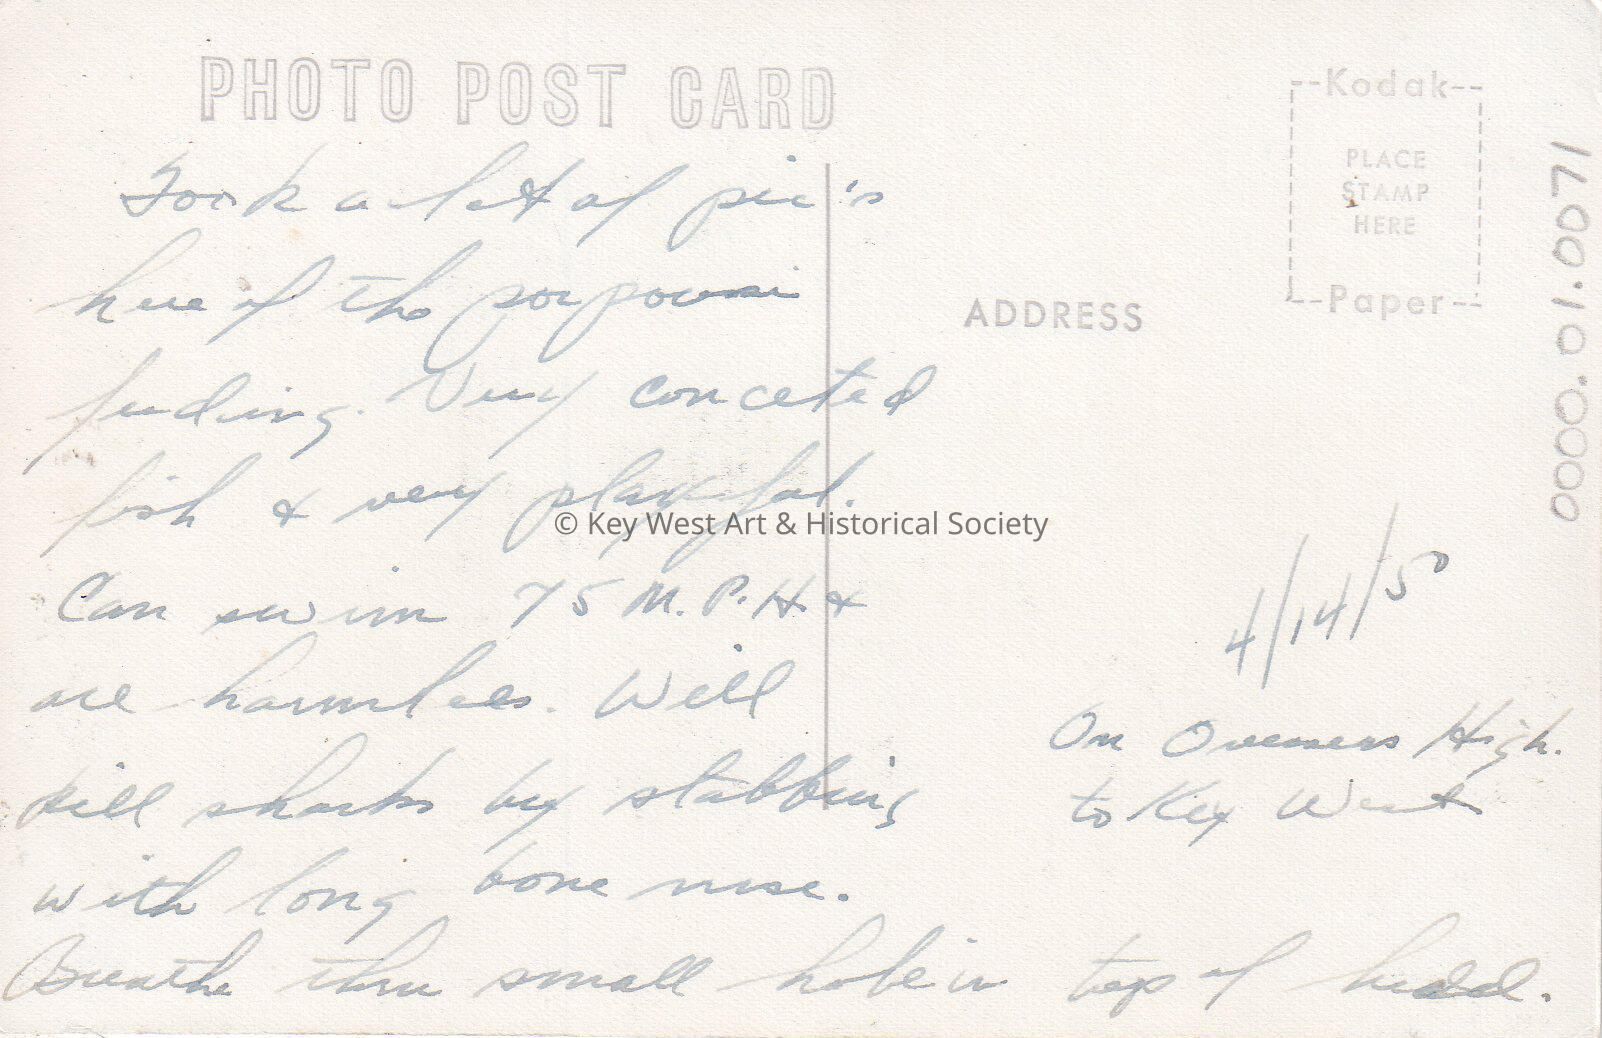 PHOTO POST CARD
Took a lot of pic's
here of the porpousi
feeding. Very conceted
fish & very playful.
Can swim 75 M.P.H &
are harmless. Will
kill sharks by stabbing
with long bone nose.
Breathe thru small hole in top of head.
--Kodak--
PLACE
STAMP
HERE
--Paper--
ADDRESS
4/14/50
On Overseas High.
to Key West
0000.01.0071
© Key West Art & Historical Society